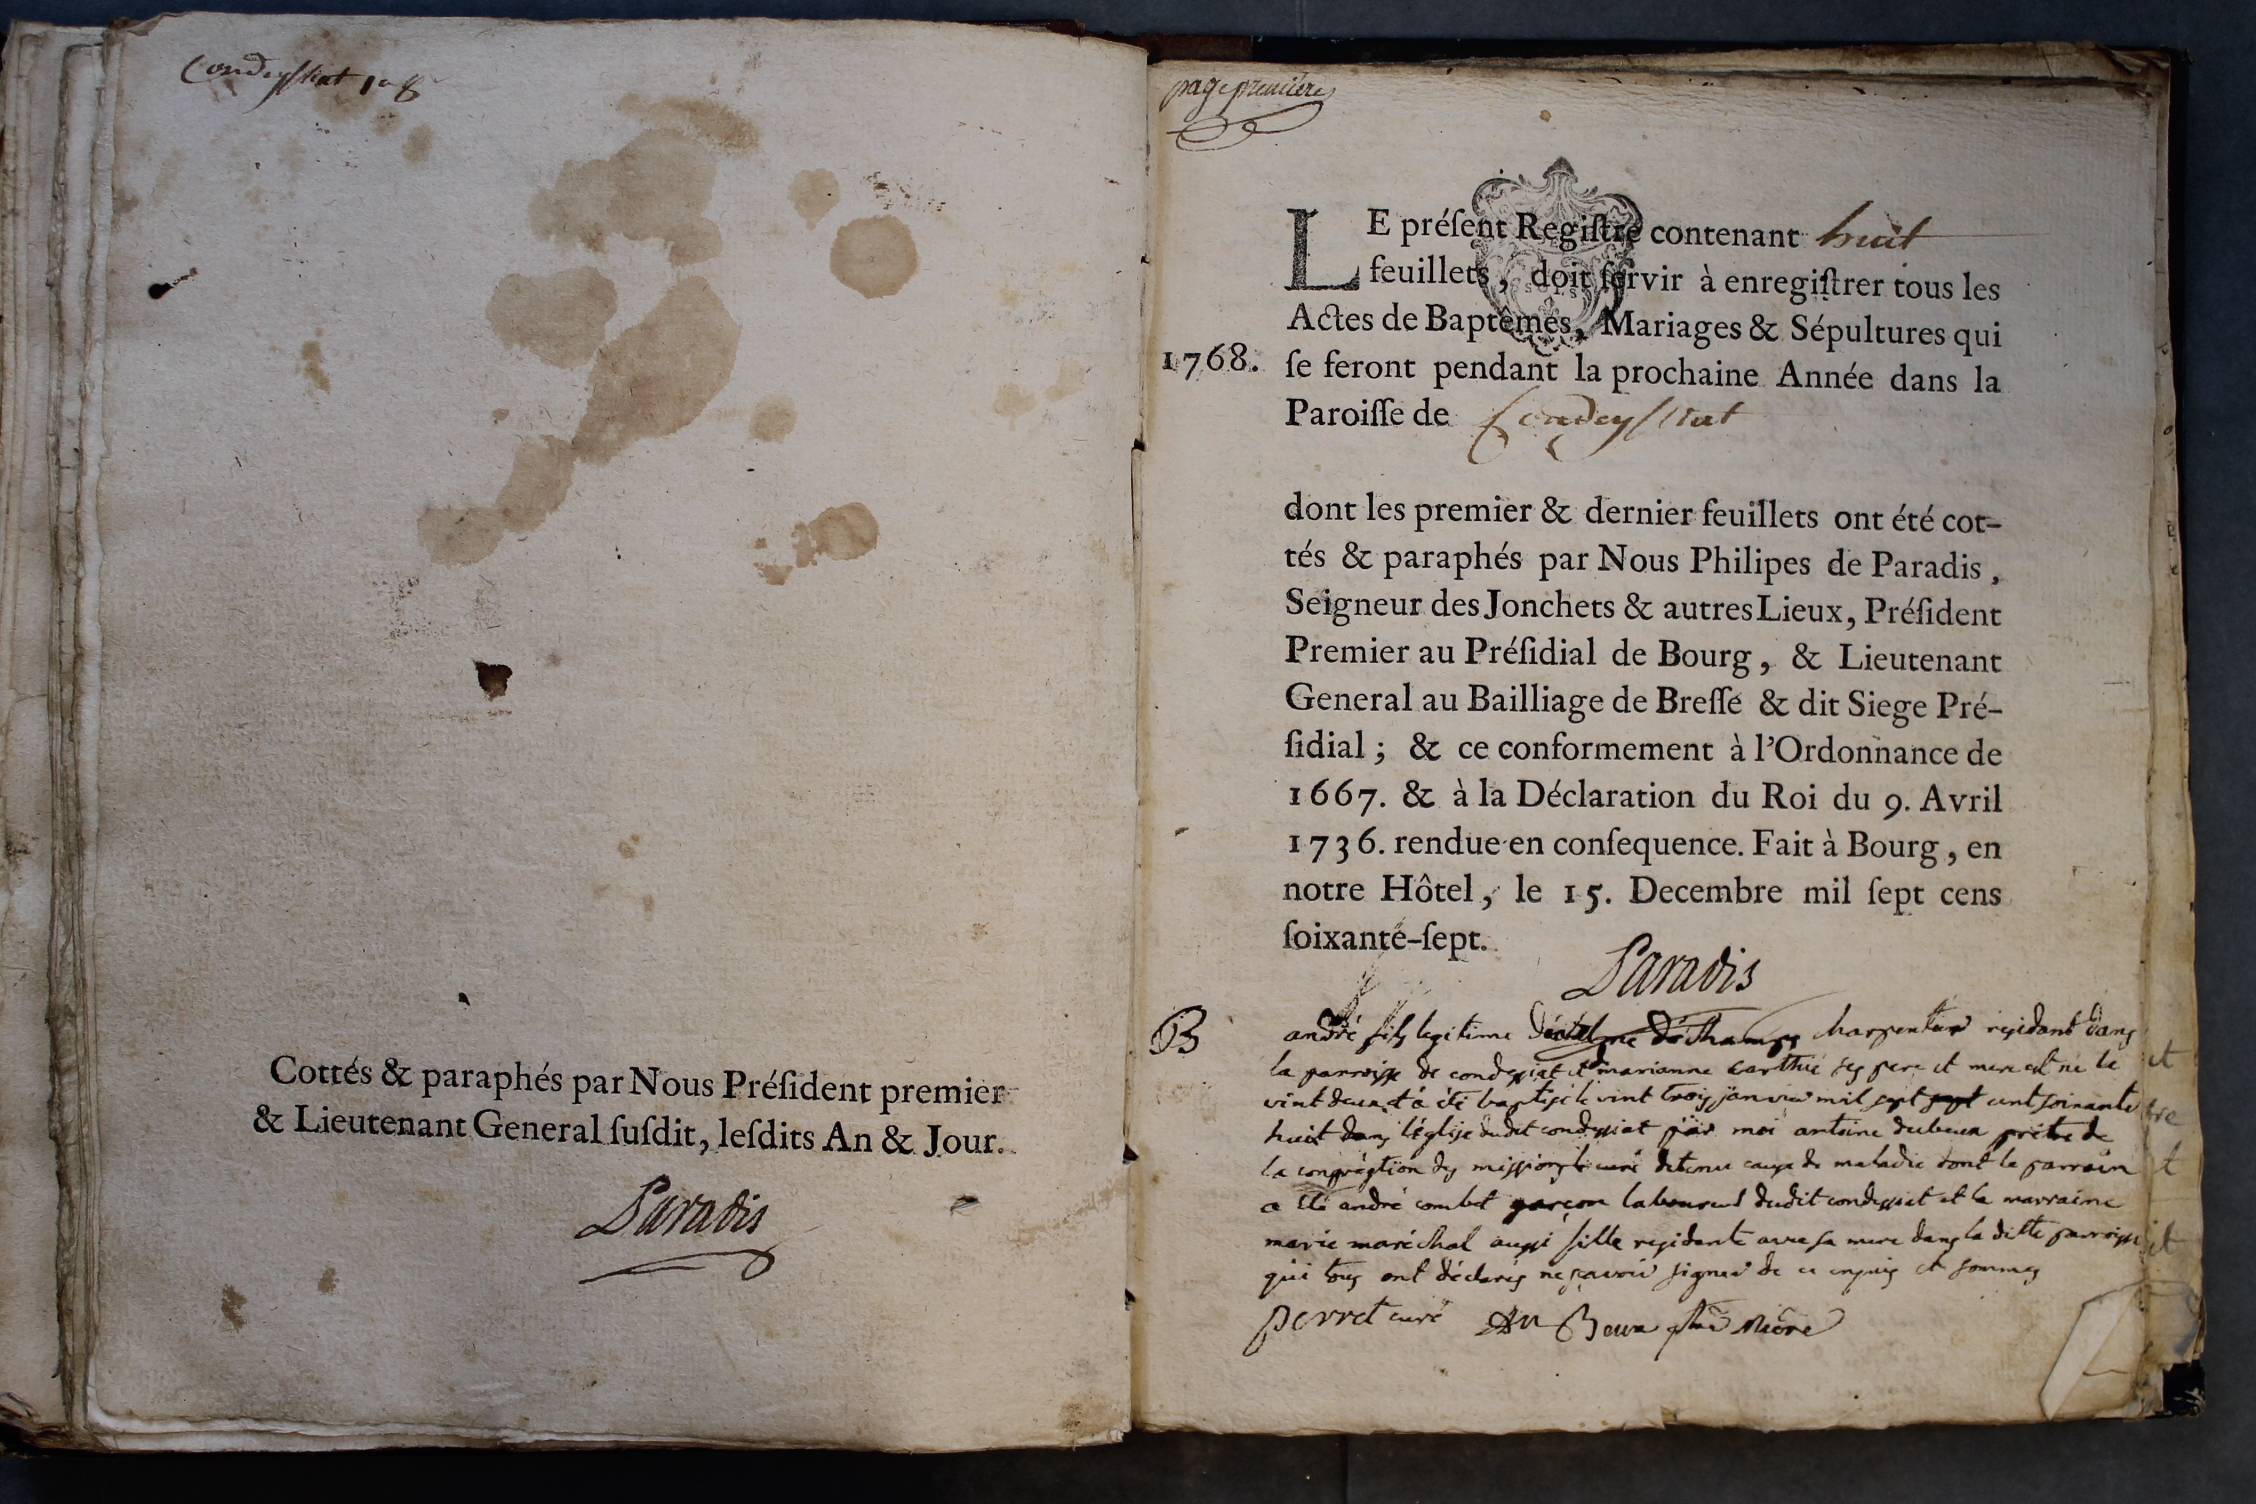 Condeyssiat
Cottés & paraphés par Nous Préſident premier
& Lieutenant General ſuſdit, leſdits An & Jour.
Paradis
page premiere
LE préſent Regiſtre contenant huit
feuillets, doit ſervir à enregiſtrer tous les
Actes de Baptêmes, Mariages & Sépultures qui
1768. ſe feront pendant la prochaine Année dans la
Paroiſſe de Condeyssiat
dont les premier & dernier feuillets ont été cot-
tés & paraphés par Nous Philipes de Paradis,
Seigneur des Jonchets & autres Lieux, Préſident
Premier au Préſidial de Bourg, & Lieutenant
General au Bailliage de Breſſe & dit Siege Pré-
ſidial; & ce conformement à l'Ordonnance de
1667. & à la Déclaration du Roi du 9. Avril
1736. rendue en conſequence. Fait à Bourg, en
notre Hôtel, le 15. Decembre mil ſept cens
ſoixante-ſept.
Paradis
B andré fils legitime déchamps charpentier residant dans
la parroisse de condessiat et marianne carthie ses pere et mere est né le
vint deux et à été baptisé le vint trois janvier mil sept sept cent soixante
huit dans l'église dudit condessiat par moi antoine dubeux prêtre de
la congrégtion des missions le curé detenu cause de maladie dont le parrain
a été andré combet garçon laboureur dudit condessiat et la marraine
marie maréchal aussi fille residante avec sa mere dans la ditte parroisse
qui tous ont déclarés ne sçavoir signer de ce enquis et sommes
perret curé